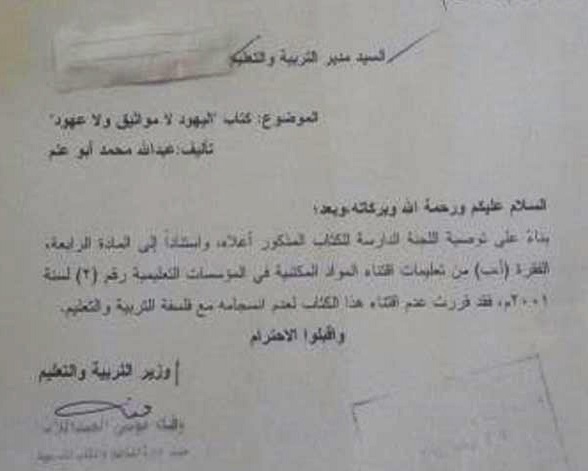 السيد مدير التربية والتعليم
الموضوع: كتاب "اليهود لا مواثيق ولا عهود"
تأليف:عبدالله محمد أبو علم
السلام عليكم ورحمة الله وبركاته،وبعد؛
بناءً على توصية اللجنة الدارسة للكتاب المذكور أعلاه، واستناداً إلى المادة الرابعة،
الفقرة (أ،ب) من تعليمات اقتناء المواد المكتبية في المؤسسات التعليمية رقم (٢) لسنة
٢٠٠١م، فقد قررت عدم اقتناء هذا الكتاب لعدم انسجامه مع فلسفة التربية والتعليم.
واقبلوا الاحترام
وزير التربية والتعليم